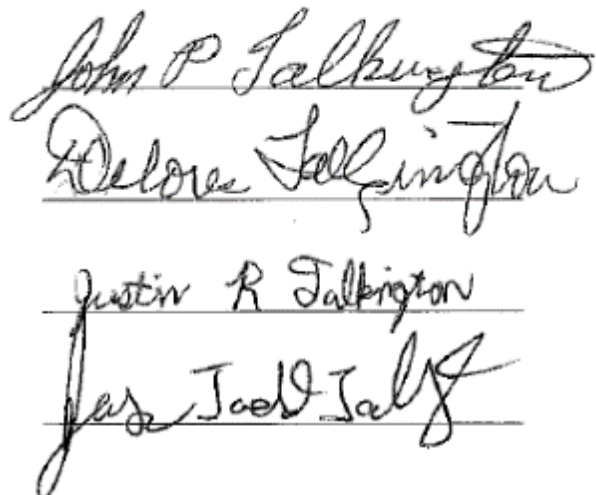 John P Talkington
Delores Talkington
Justin R Talkington
Todd